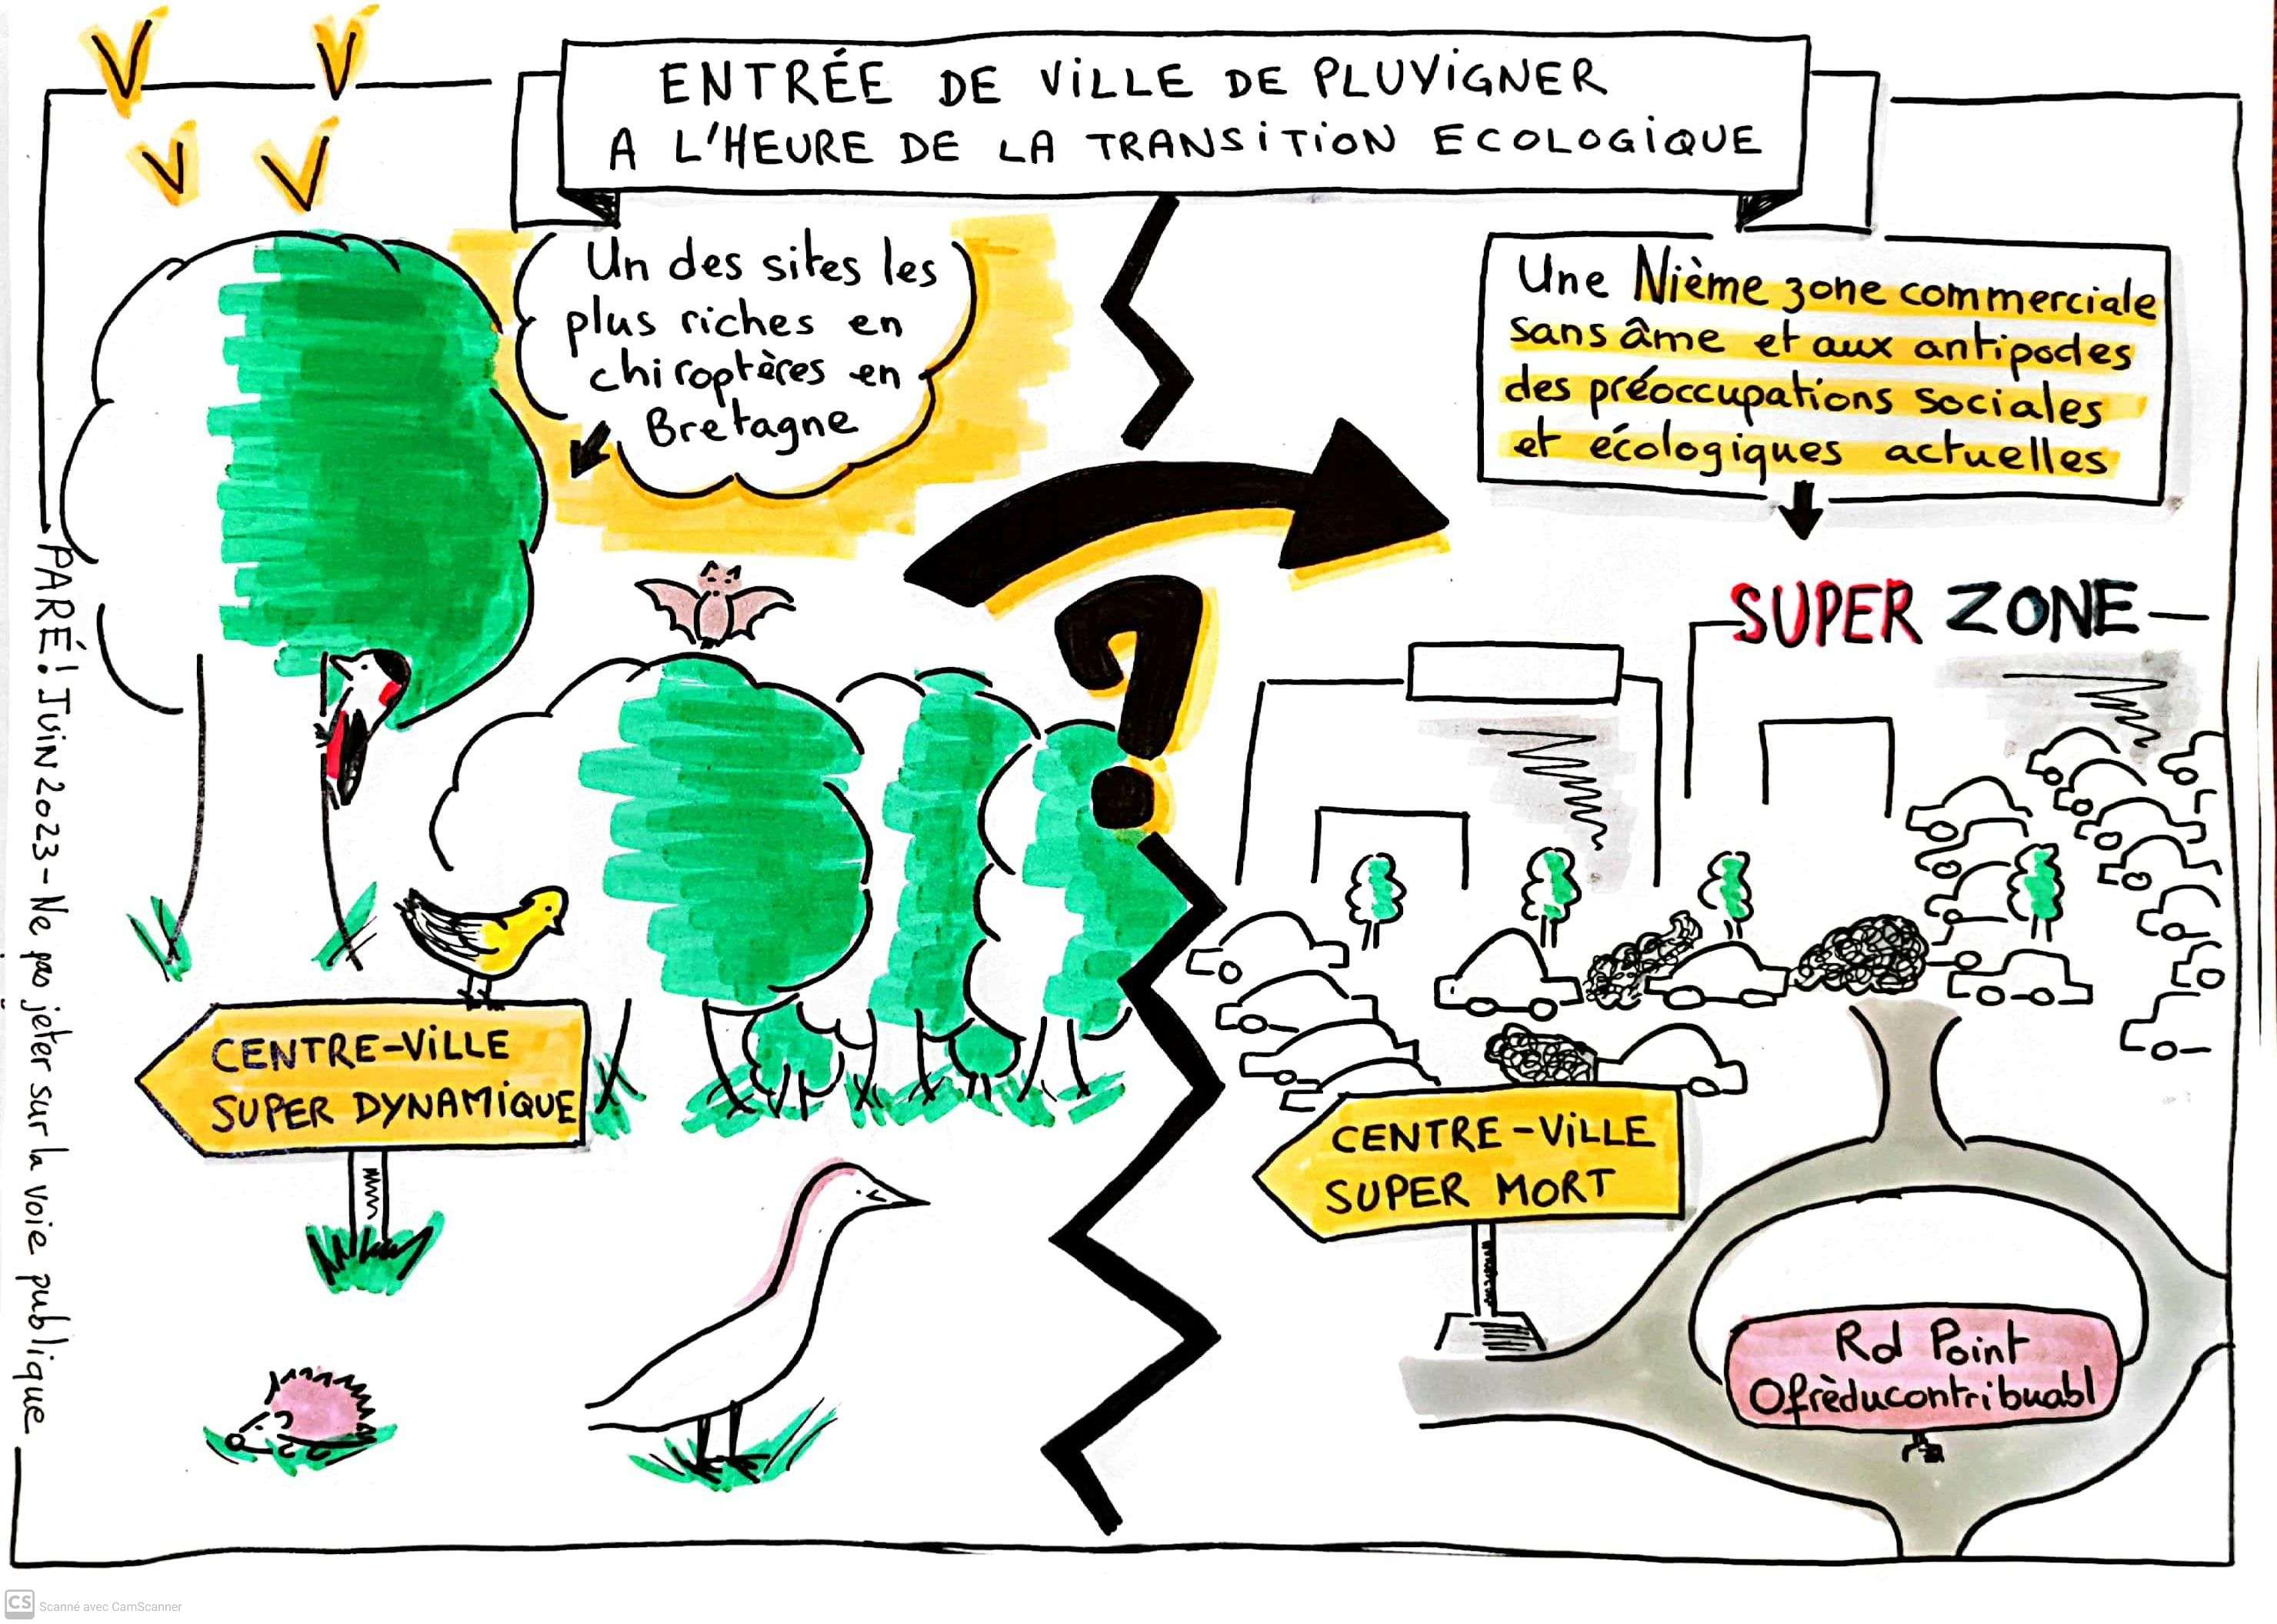 ENTRÉE DE VILLE DE PLUVIGNER
A L'HEURE DE LA TRANSITION ECOLOGIQUE
Un des sites les
plus riches en
chiroptères en
Bretagne
Une Nième zone commerciale
sans âme et aux antipodes
des préoccupations sociales
et écologiques actuelles
SUPER ZONE
CENTRE-VILLE
SUPER DYNAMIQUE
?
CENTRE-VILLE
SUPER MORT
Rd Point
Ofrèducontribuabl
PARÉ! JUIN 2023 - Ne pas jeter sur la voie publique
CS Scanné avec CamScanner